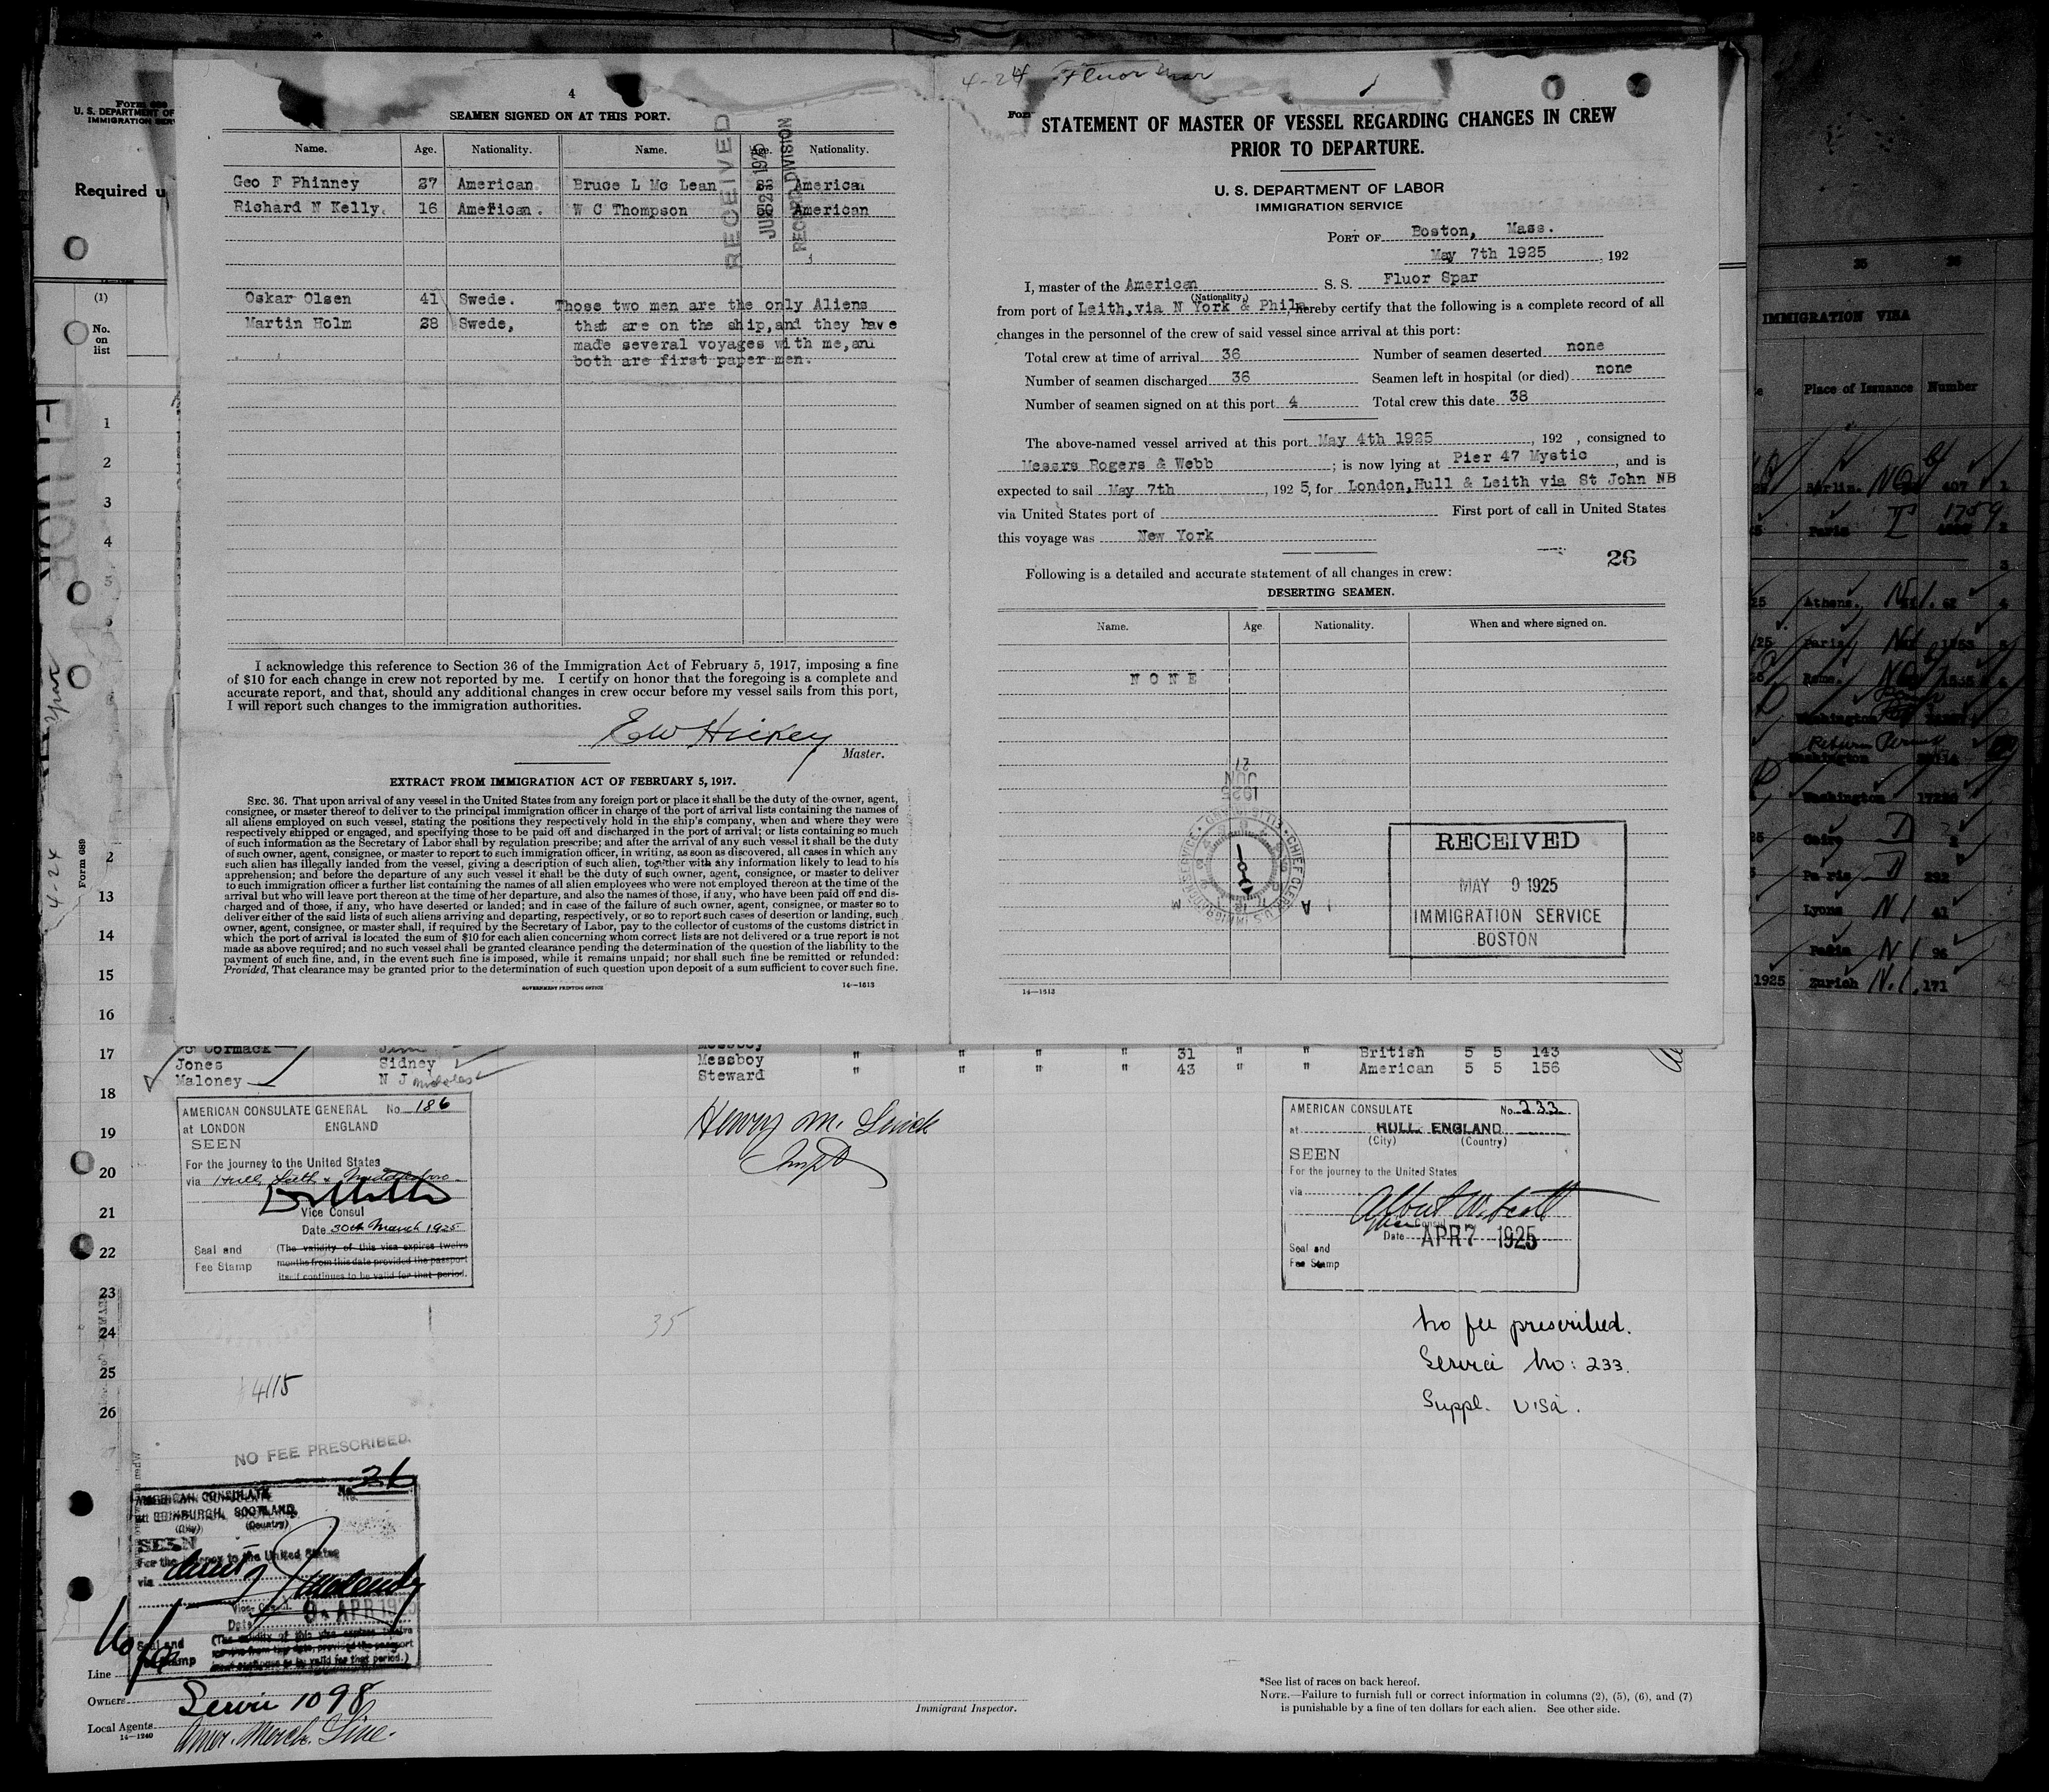 4
SEAMEN SIGNED ON AT THIS PORT.
Name. Age. Nationality. Name. Age. Nationality.
Geo F Phinney 27 American. Bruce L Mc Lean American
Richard N Kelly. 16 American. W C Thompson American
Oskar Olsen 41 Swede. Those two men are the only Aliens
Martin Holm 28 Swede, that are on the ship,and they have
made several voyages with me,and
both are first paper men.
RECEIVED
1925
RECORD DIVISION
I acknowledge this reference to Section 36 of the Immigration Act of February 5, 1917, imposing a fine
of $10 for each change in crew not reported by me. I certify on honor that the foregoing is a complete and
accurate report, and that, should any additional changes in crew occur before my vessel sails from this port,
I will report such changes to the immigration authorities.
E W Hickey
Master.
EXTRACT FROM IMMIGRATION ACT OF FEBRUARY 5, 1917.
SEC. 36. That upon arrival of any vessel in the United States from any foreign port or place it shall be the duty of the owner, agent,
consignee, or master thereof to deliver to the principal immigration officer in charge of the port of arrival lists containing the names of
all aliens employed on such vessel, stating the positions they respectively hold in the ship's company, when and where they were
respectively shipped or engaged, and specifying those to be paid off and discharged in the port of arrival; or lists containing so much
of such information as the Secretary of Labor shall by regulation prescribe; and after the arrival of any such vessel it shall be the duty
of such owner, agent, consignee, or master to report to such immigration officer, in writing, as soon as discovered, all cases in which any
such alien has illegally landed from the vessel, giving a description of such alien, together with any information likely to lead to his
apprehension; and before the departure of any such vessel it shall be the duty of such owner, agent, consignee, or master to deliver
to such immigration officer a further list containing the names of all alien employees who were not employed thereon at the time of the
arrival but who will leave port thereon at the time of her departure, and also the names of those, if any, who have been paid off and dis-
charged and of those, if any, who have deserted or landed; and in case of the failure of such owner, agent, consignee, or master so to
deliver either of the said lists of such aliens arriving and departing, respectively, or so to report such cases of desertion or landing, such
owner, agent, consignee, or master shall, if required by the Secretary of Labor, pay to the collector of customs of the customs district in
which the port of arrival is located the sum of $10 for each alien concerning whom correct lists are not delivered or a true report is not
made as above required; and no such vessel shall be granted clearance pending the determination of the question of the liability to the
payment of such fine, and, in the event such fine is imposed, while it remains unpaid; nor shall such fine be remitted or refunded:
Provided, That clearance may be granted prior to the determination of such question upon deposit of a sum sufficient to cover such fine.
GOVERNMENT PRINTING OFFICE
14—1613
4-24 Fluor Spar
STATEMENT OF MASTER OF VESSEL REGARDING CHANGES IN CREW
PRIOR TO DEPARTURE.
U. S. DEPARTMENT OF LABOR
IMMIGRATION SERVICE
PORT OF Boston, Mass.
May 7th 1925, 192
I, master of the American S. S. Fluor Spar
(Nationality.)
from port of Leith,via N York & Phila hereby certify that the following is a complete record of all
changes in the personnel of the crew of said vessel since arrival at this port:
Total crew at time of arrival 36 Number of seamen deserted none
Number of seamen discharged 36 Seamen left in hospital (or died) none
Number of seamen signed on at this port 4 Total crew this date 38
The above-named vessel arrived at this port May 4th 1925, 192 , consigned to
Messrs Rogers & Webb; is now lying at Pier 47 Mystic, and is
expected to sail May 7th, 192 5, for London,Hull & Leith via St John NB
via United States port of First port of call in United States
this voyage was New York
26
Following is a detailed and accurate statement of all changes in crew:
DESERTING SEAMEN.
Name. Age. Nationality. When and where signed on.
N O N E
1925
JUN
27
RECEIVED
MAY 9 1925
IMMIGRATION SERVICE
BOSTON
14—1613
Form 689
U. S. DEPARTMENT OF
IMMIGRATION SER
Required u
(1)
No.
on
list
1
2
3
4
5
Form 689
4-24
2
13
14
15
16
17
18
19
20
21
22
23
24
25
26
27
IMMIGRATION VISA
Place of Issuance Number
Berlin. 407 1
Paris 1759 2
3
Athens. 62 4
Paris
Rome.
Washington
Return Permit
Washington
Washington
Cairo
Paris 292
Lyons N I 41
Paris N I 96
1925 Zurich N. I. 171
Mc Cormack Jim Messboy
Jones Sidney Messboy " " " " 31 " " British 5 5 143
Maloney N J Nicholas Steward " " " " 43 " " American 5 5 156
AMERICAN CONSULATE GENERAL No. 186
at LONDON ENGLAND
SEEN
For the journey to the United States
via Hull, Leith &
Vice Consul
Date 30th March 1925
Seal and
Fee Stamp
(The validity of this visa expires twelve
months from this date provided the passport
itself continues to be valid for that period.
AMERICAN CONSULATE No. 233
at HULL ENGLAND
(City) (Country)
SEEN
For the journey to the United States
via
Albert W. Scott
Date APR 7 1925
Seal and
Fee Stamp
No fee prescribed.
Service No: 233.
Suppl. visa.
35
4115
NO FEE PRESCRIBED.
AMERICAN CONSULATE No. 26
at EDINBURGH, SCOTLAND
(City) (Country)
SEEN
For the journey to the United States
via direct
Date 9 APR 1925
Seal and
Fee Stamp
(The validity of this visa expires twelve
months from this date provided the passport
itself continues to be valid for that period.)
Line
Owners
Service 1098
Local Agents
Amer. Merch. Line.
14—1240
Immigrant Inspector.
*See list of races on back hereof.
NOTE.—Failure to furnish full or correct information in columns (2), (5), (6), and (7)
is punishable by a fine of ten dollars for each alien. See other side.